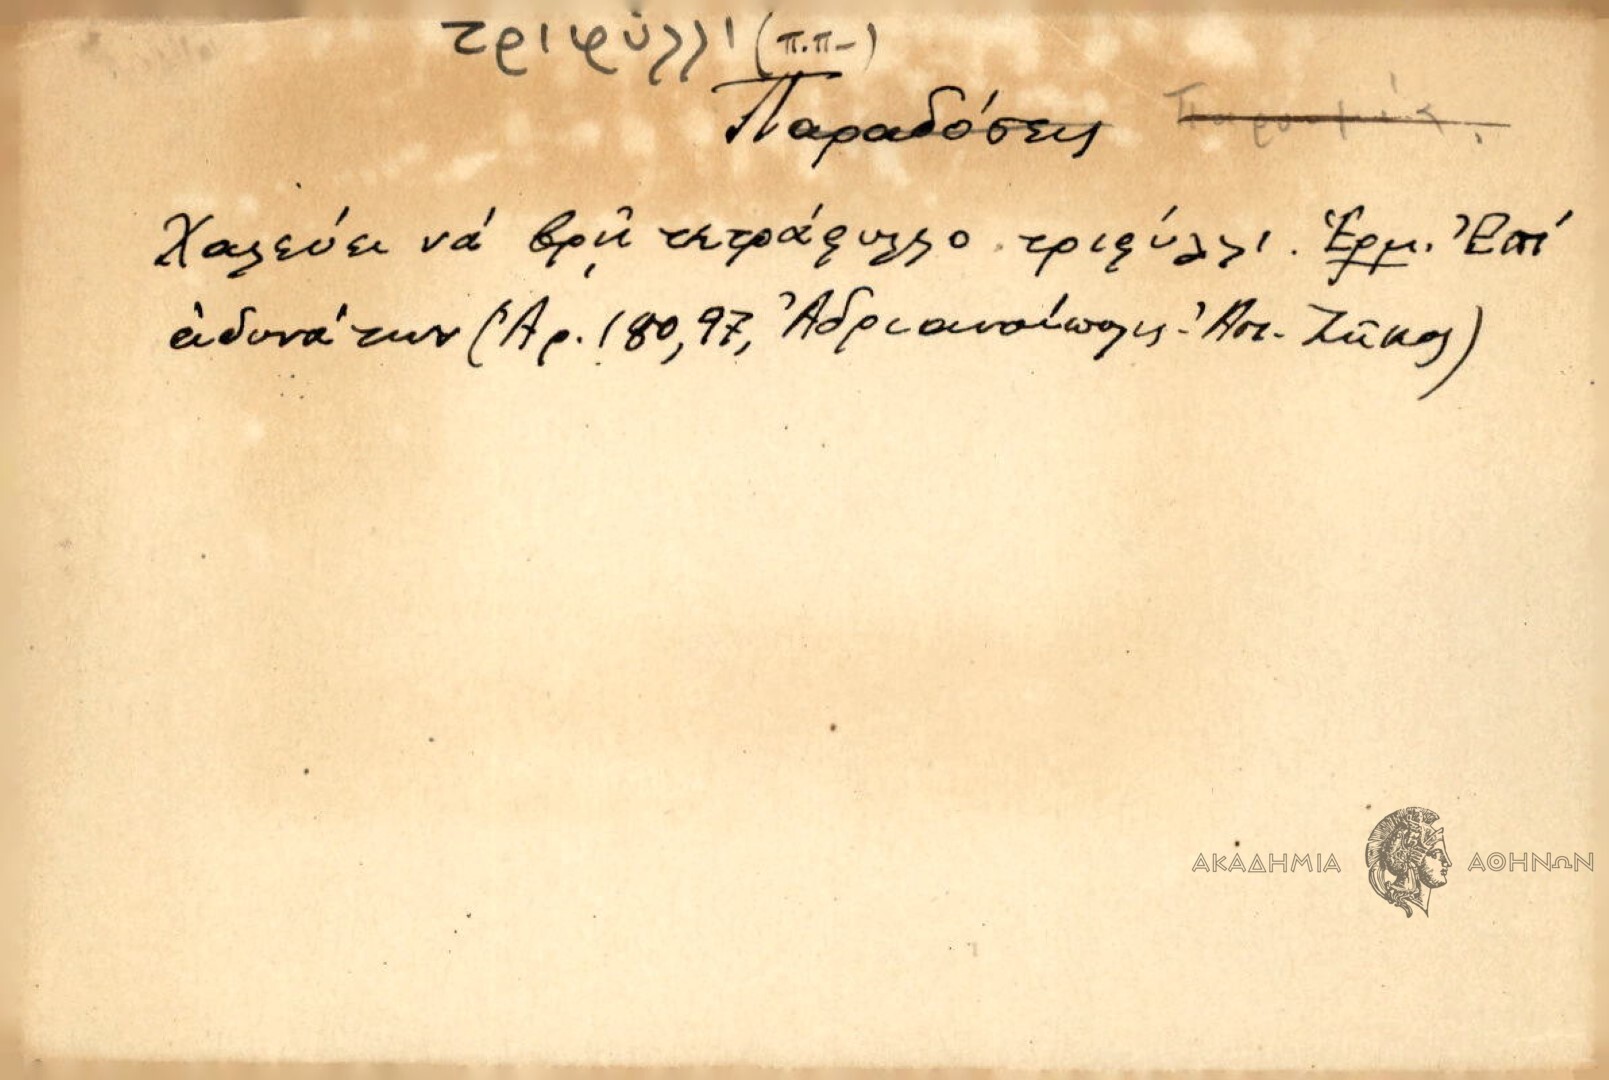 τριφύλλι (π.π-)
Παραδόσεις
Χαλεύει νά βρῇ τετράφυλλο τριφύλλι. Ἑρμ. Ἐπί
ἀδυνάτων (Ἀρ. 180, 97, Ἀδριανούπολις - Ἀπ. Ζῆκος)
ΑΚΑΔΗΜΙΑ ΑΘΗΝΩΝ